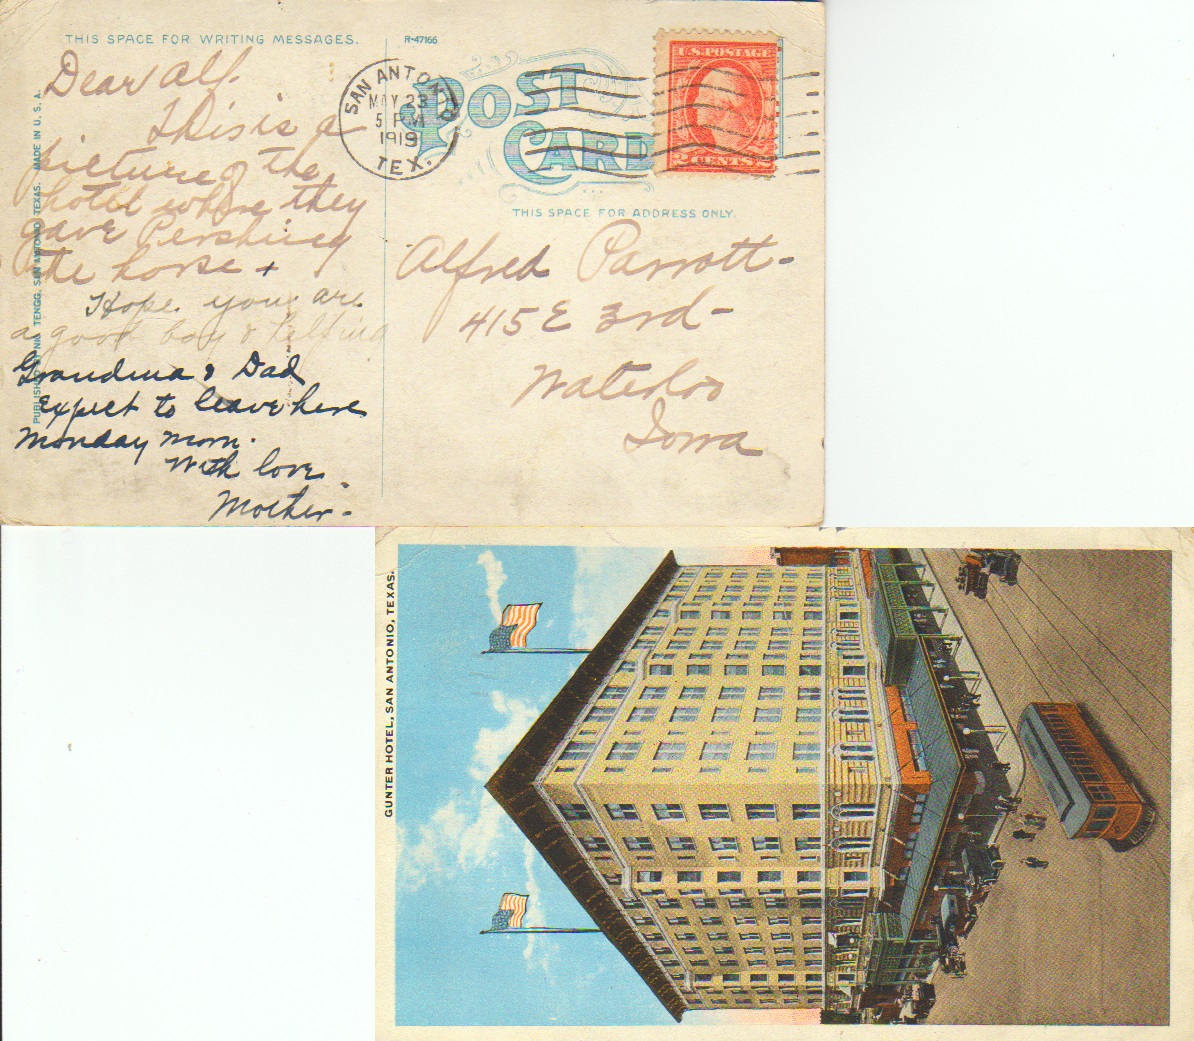 THIS SPACE FOR WRITING MESSAGES.
R-47166
POST
CARD
SAN ANTONIO
MAY 23
5 PM
1919
TEX.
U.S. POSTAGE
2 CENTS 2
THIS SPACE FOR ADDRESS ONLY.
Dear Alf.
This is a
picture of the
hotel where they
gave Pershing
the horse +
Hope you are
a good boy & helping
Grandma & Dad
Expect to leave here
Monday morn.
With love
Mother-
Alfred Parrott-
415 E 3rd-
Waterloo
Iowa
PUBLISHED BY NIC TENGG, SAN ANTONIO, TEXAS. MADE IN U. S. A.
GUNTER HOTEL, SAN ANTONIO, TEXAS.